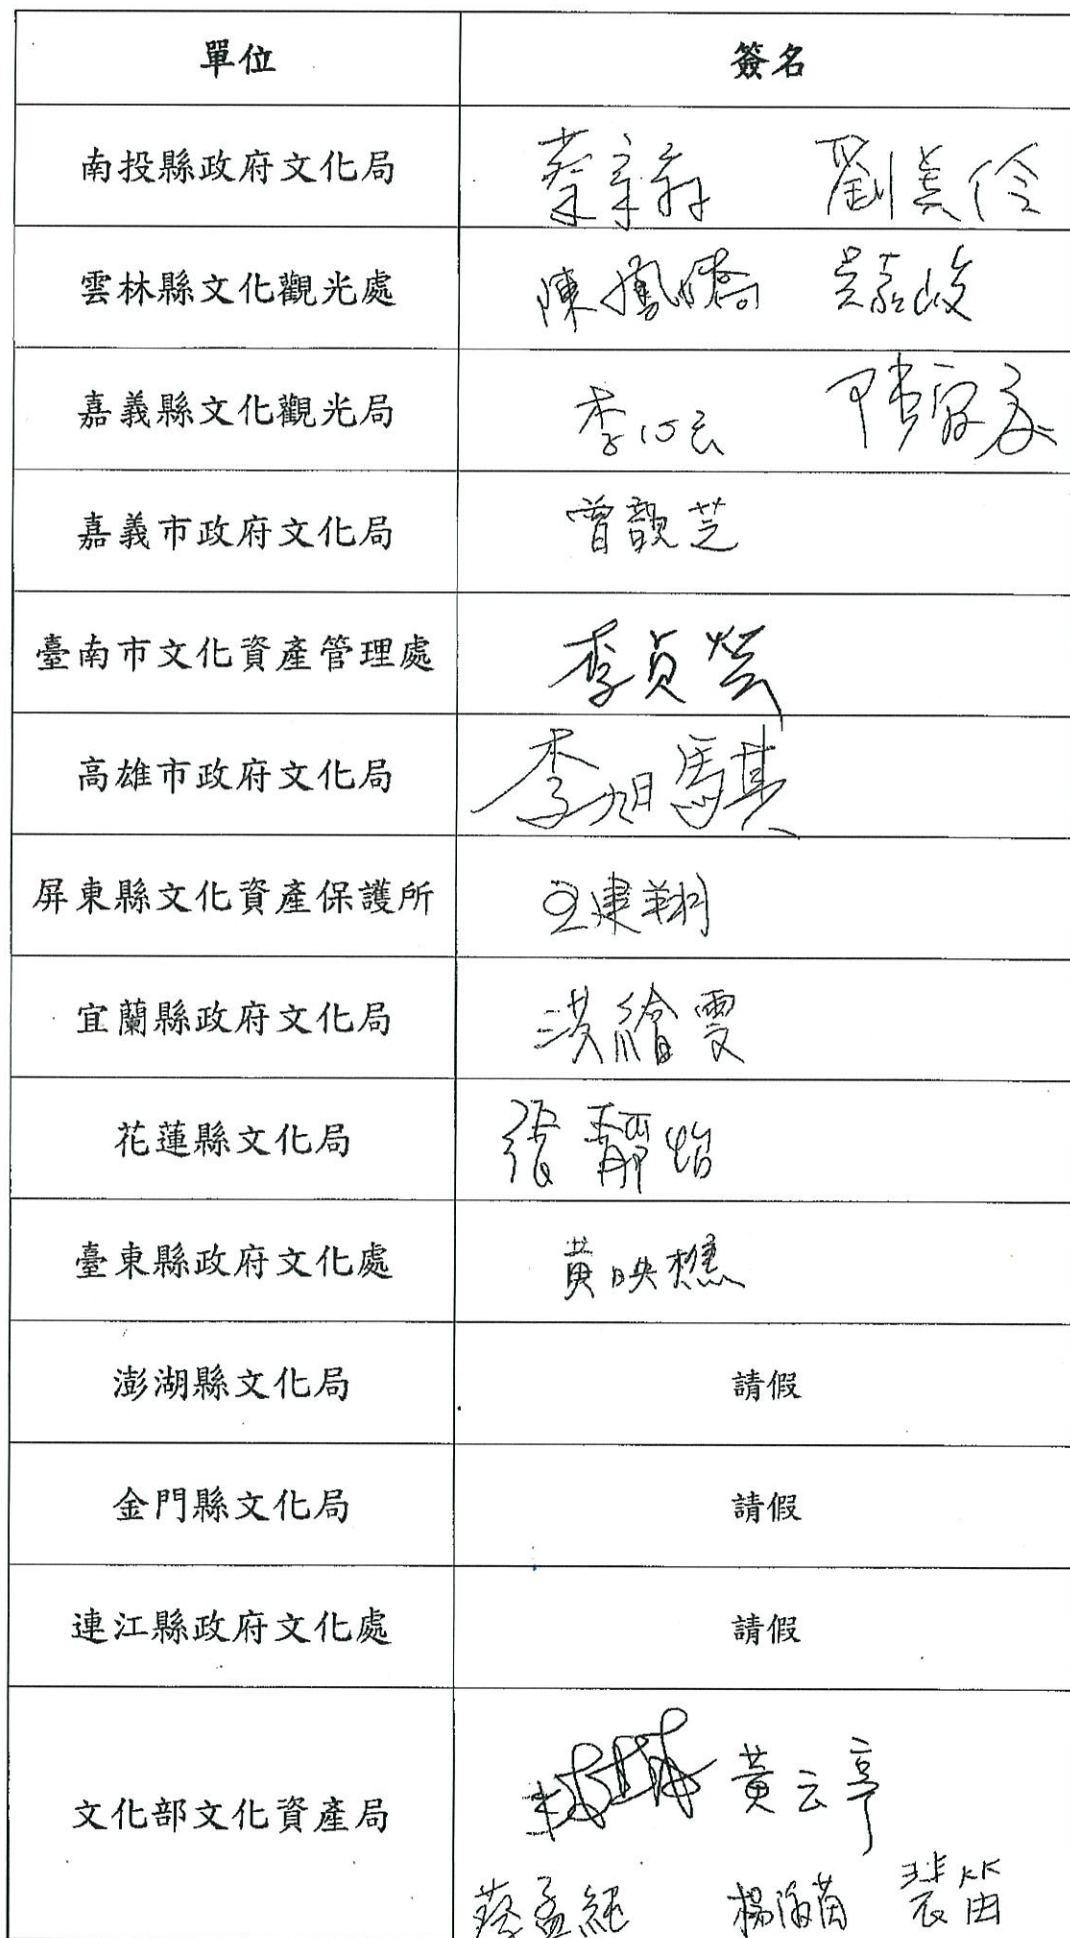 單位 簽名
南投縣政府文化局 劉美伶
雲林縣文化觀光處 陳鳳嬌 吳嘉峻
嘉義縣文化觀光局 李
嘉義市政府文化局 曾靚芝
臺南市文化資產管理處 李貞瑩
高雄市政府文化局 李旭騏
屏東縣文化資產保護所 王建翔
宜蘭縣政府文化局 洪繪雯
花蓮縣文化局 張靜怡
臺東縣政府文化處 黃映樵
澎湖縣文化局 請假
金門縣文化局 請假
連江縣政府文化處 請假
文化部文化資產局 黃云亭
蔡孟